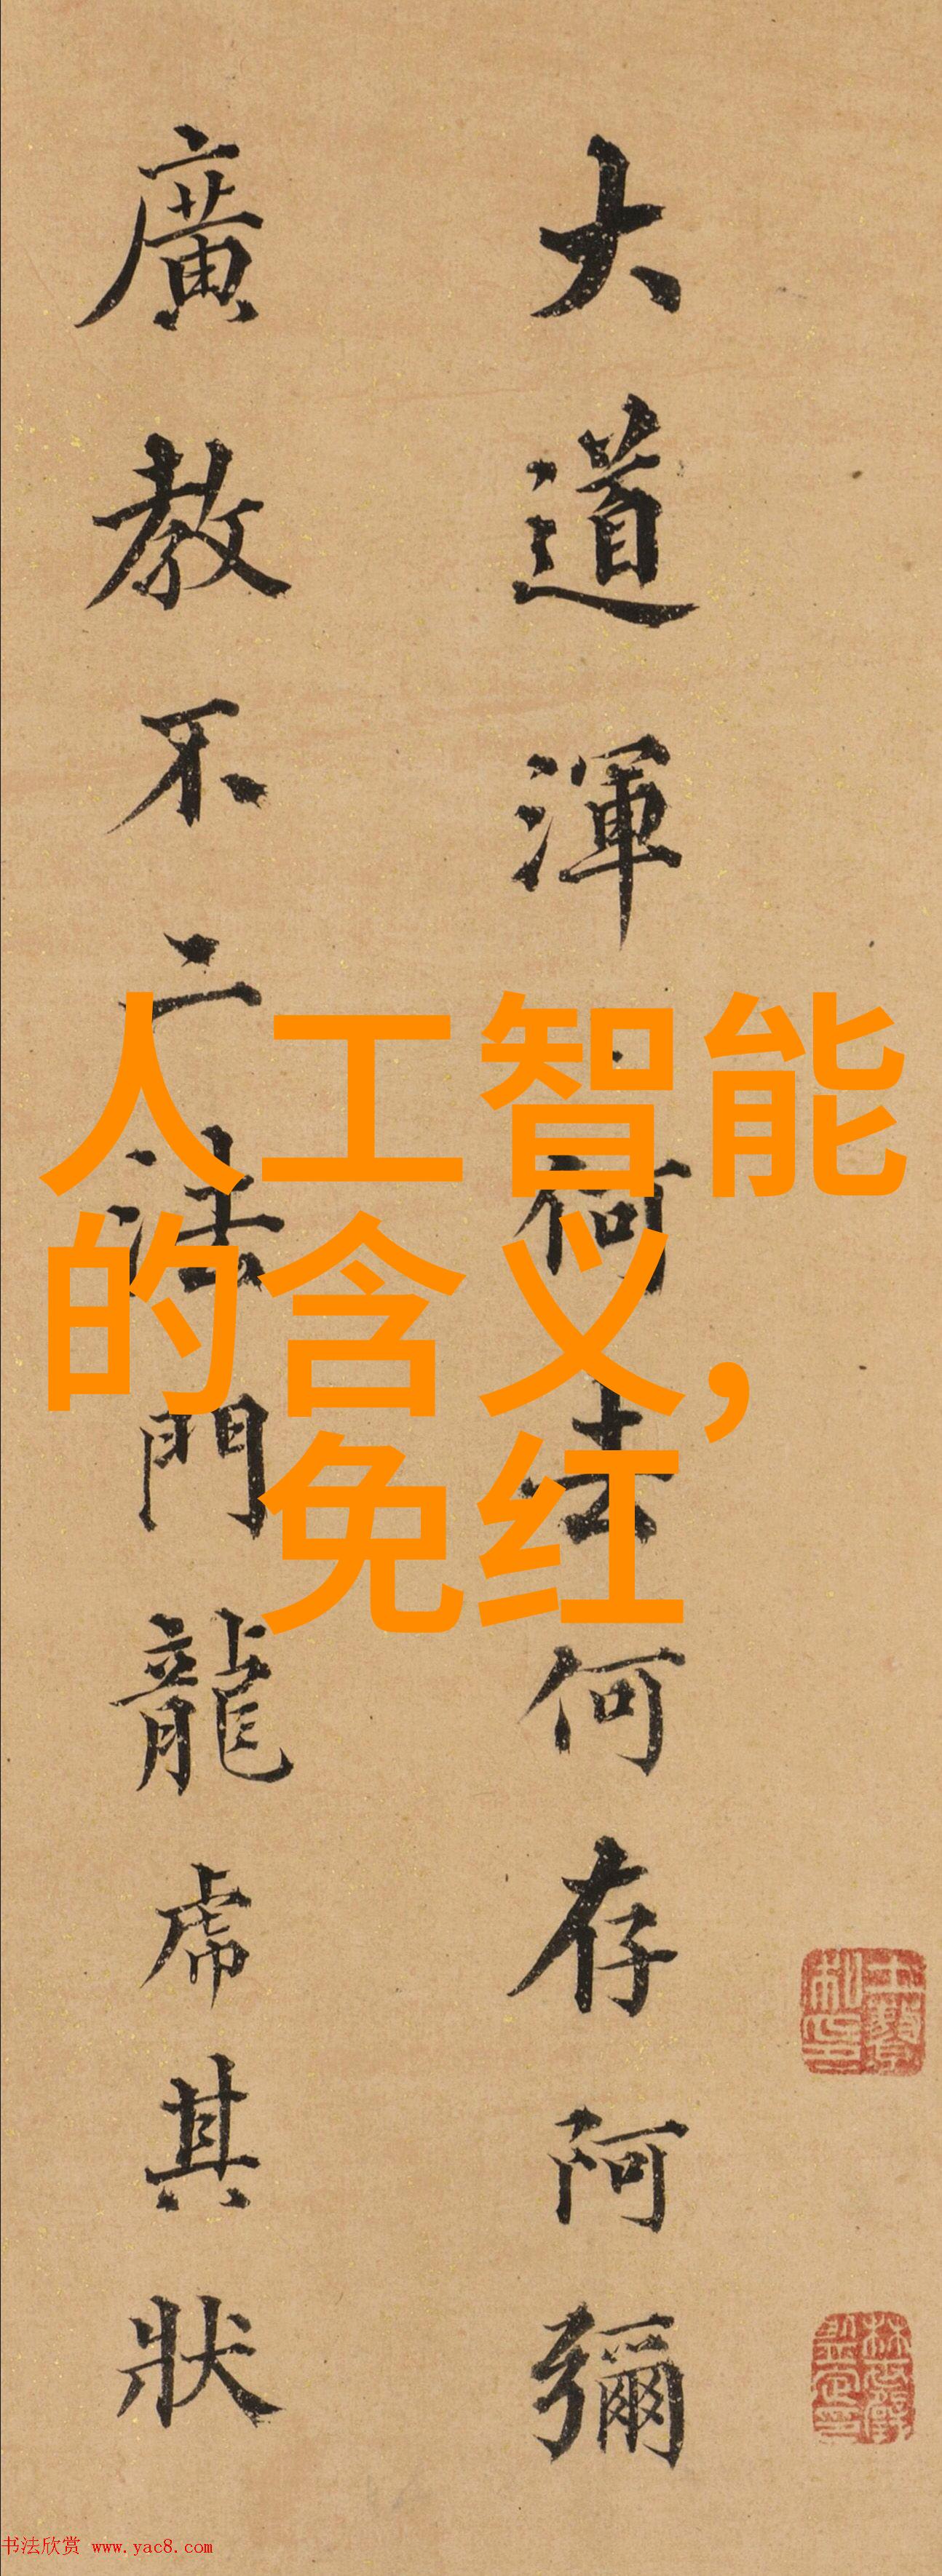 大道渾何去何存阿彌
廣教不二法門龍虎其狀
人工智能
的含义,
免红
书法欣赏 www.yac8.com